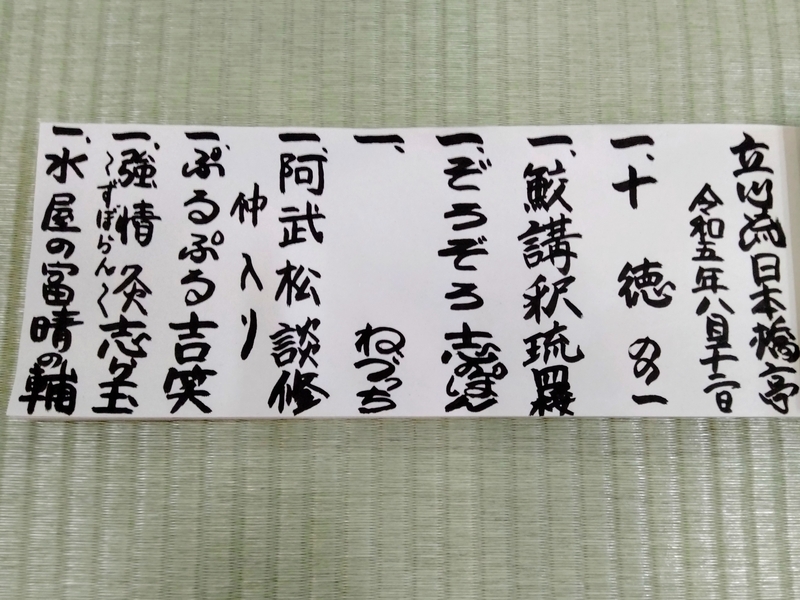 立川流日本橋亭
令和五年八月十二日
一、十徳 の一
一、鮫講釈 琉羅
一、ぞろぞろ 志のぽん
一、 ねづっち
一、阿武松 談修
仲入り
一、ぷるぷる 吉笑
一、強情灸 志ゑ玉
〜ずぼらん〜
一、水屋の富 晴の輔